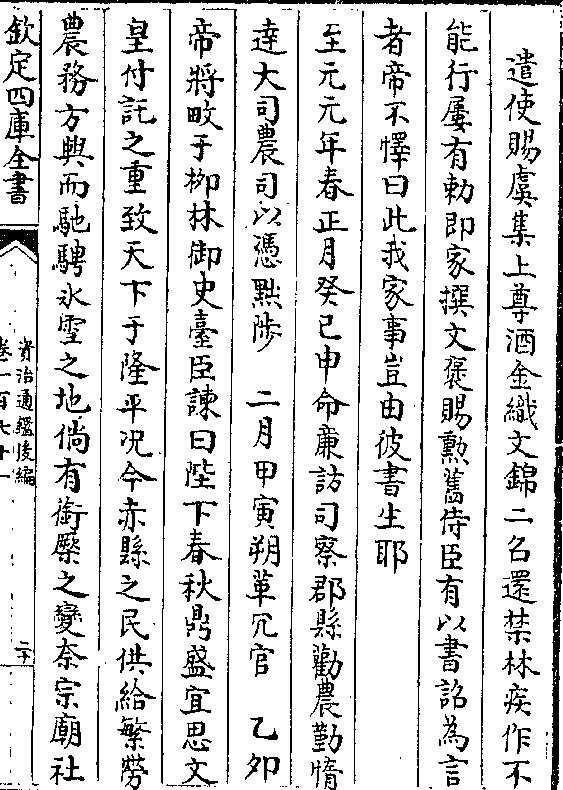 遣使賜虞集上尊酒金織文錦二名還禁林疾作不
能行屢有勅即家撰文褒賜勲舊侍臣有以書詔為言
者帝不懌曰此我家事豈由彼書生耶
至元元年春正月癸巳申命亷訪司察郡縣勸農勤惰
逹大司農司以憑黜陟　二月甲寅朔革冗官　乙夘
帝將畋于柳林御史臺臣諫曰陛下春秋鼎盛宜思文
皇付託之重致天下于隆平况今赤縣之民供給繁勞
農務方興而馳騁氷雪之地倘有銜橜之變奈宗廟社
欽定四庫全書
資治通鑑後編
卷一百七十一
二十